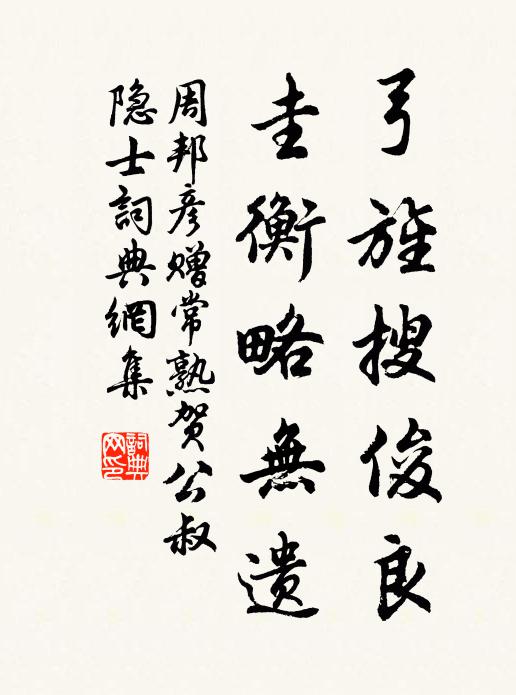 弓旌搜俊良
圭衡略無遺
周邦彦赠常熟贺公叔
隐士詞典網集
詞典网印